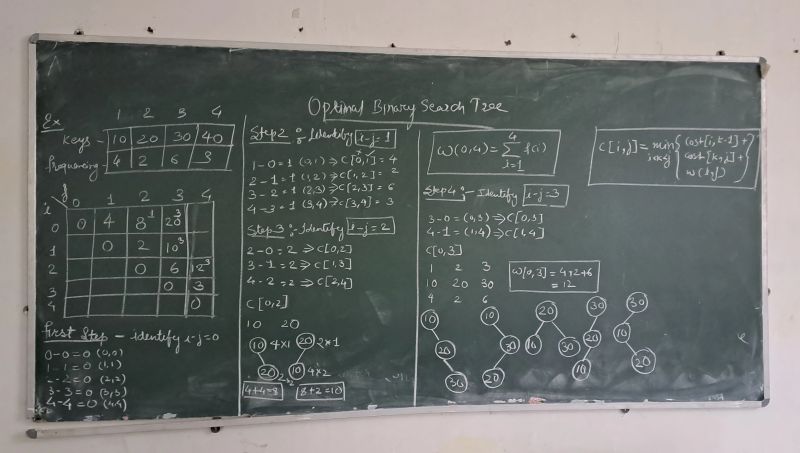 Optimal Binary Search Tree
Ex
1 2 3 4
Keys - 10 20 30 40
Frequencing - 4 2 6 3
j
i 0 1 2 3 4
0 0 4 8¹ 20³
1 0 2 10³
2 0 6 12³
3 0 3
4 0
First Step - identify i-j=0
0-0=0 (0,0)
1-1=0 (1,1)
2-2=0 (2,2)
3-3=0 (3,3)
4-4=0 (4,4)
Step2 :- Identify i-j=1
1-0=1 (0,1) ⇒ C[0,1] = 4
2-1=1 (1,2) ⇒ C[1,2] = 2
3-2=1 (2,3) ⇒ C[2,3] = 6
4-3=1 (3,4) ⇒ C[3,4] = 3
Step3 :- Identify i-j=2
2-0=2 ⇒ C[0,2]
3-1=2 ⇒ C[1,3]
4-2=2 ⇒ C[2,4]
C[0,2]
10 20
10 4×1 20 2×1
20 2×2 10 4×2
4+4=8 8+2=10
W(0,4) = 4 Σ i=1 f(i)
Step4 :- Identify i-j=3
3-0=(0,3) ⇒ C[0,3]
4-1=(1,4) ⇒ C[1,4]
C[0,3]
1 2 3
10 20 30
4 2 6
W[0,3] = 4+2+6
= 12
10 10 20 30 30
20 30 10 30 20 10
30 20 10 20
C[i,j] = min i<k≤j { cost[i,k-1] +
cost[k,j] +
w(i,j) }